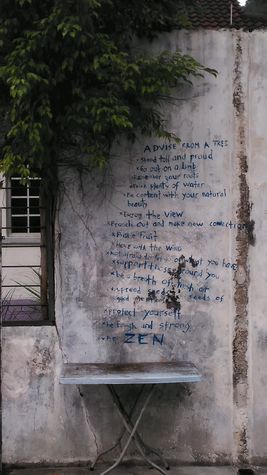 ADVISE FROM A TREE
* Stand tall and proud
* Go out on a limb
* Remember your roots
* drink plenty of water
* Be content with your natural
beauty
* Enjoy the VIEW
* Reach out and make new connection
* Bare fruit
* Move with the wind
* Not afraid to that you have
* Support those around you
* be a breath of fresh air
* spread seeds of
* protect yourself
* be tough and strong
* Be ZEN